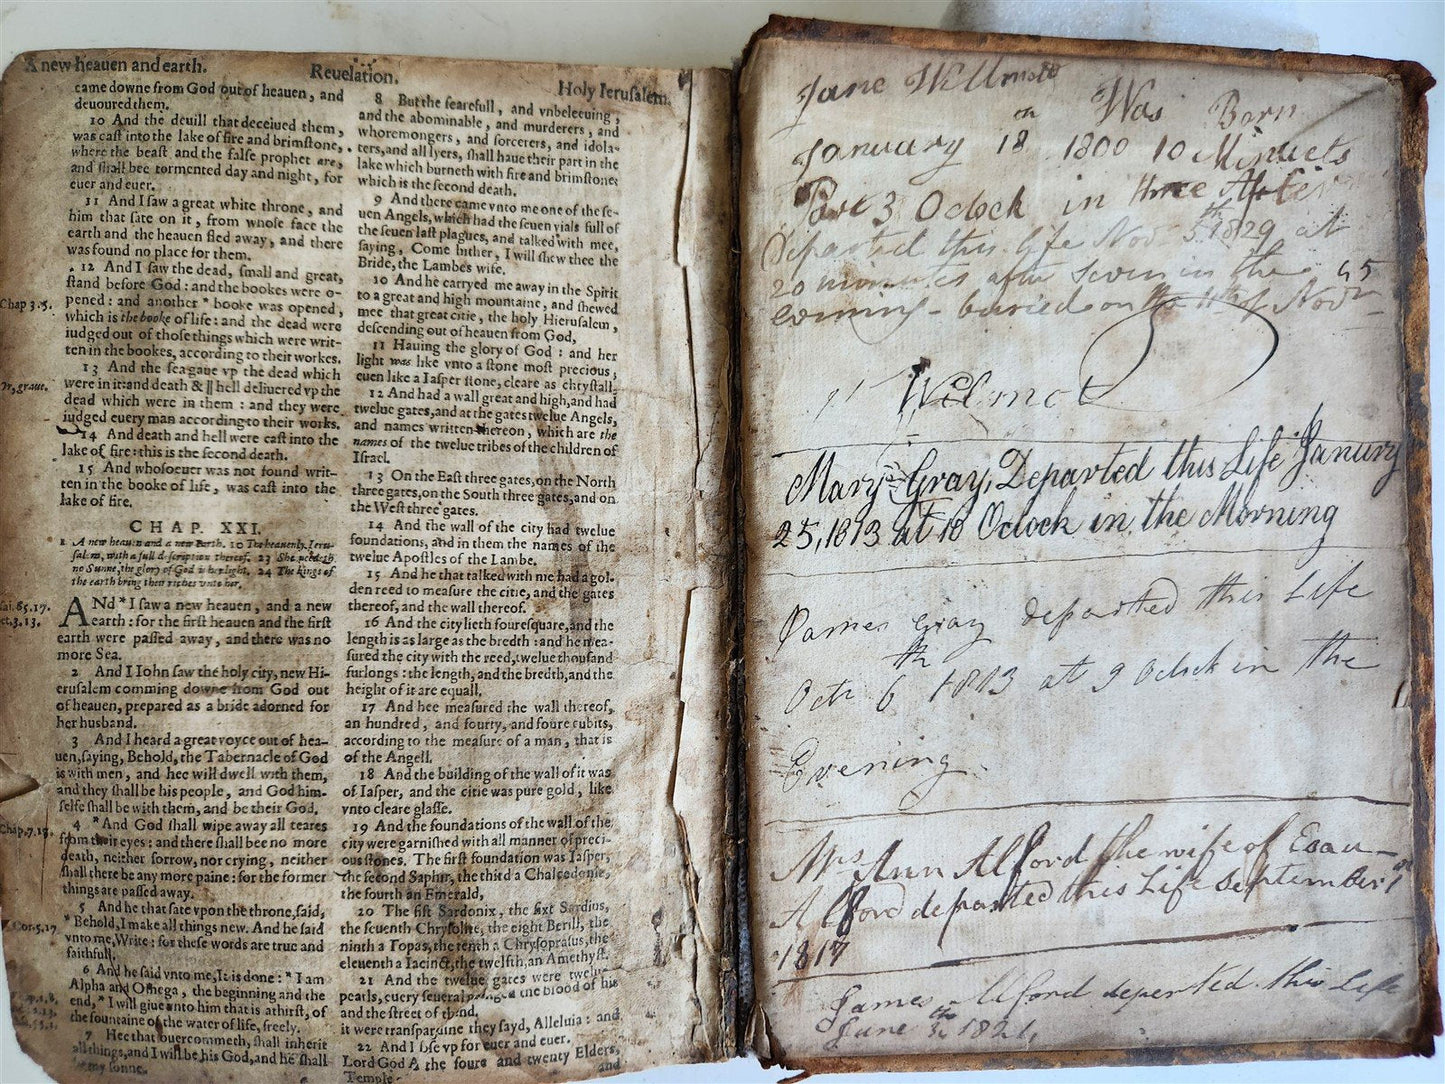 A new heauen and earth.
Reuelation.
Holy Ierusalem.
came downe from God out of heauen, and
deuoured them.
10 And the deuill that deceiued them,
was cast into the lake of fire and brimstone,
where the beast and the false prophet are,
and shall bee tormented day and night, for
euer and euer.
11 And I saw a great white throne, and
him that sate on it, from whose face the
earth and the heauen fled away, and there
was found no place for them.
12 And I saw the dead, small and great,
stand before God: and the bookes were o-
Chap 3.5.
pened: and another * booke was opened,
which is the booke of life: and the dead were
iudged out of those things which were writ-
ten in the bookes, according to their workes.
13 And the sea gaue vp the dead which
Or, graue.
were in it: and death & || hell deliuered vp the
dead which were in them: and they were
iudged euery man according to their works.
14 And death and hell were cast into the
lake of fire: this is the second death.
15 And whosoeuer was not found writ-
ten in the booke of life, was cast into the
lake of fire.
CHAP. XXI.
1 A new heauen and a new Earth. 10 The heauenly Ieru-
salem, with a full description thereof. 23 She needeth
no Sunne, the glory of God is her light. 24 The kings of
the earth bring their riches vnto her.
65.17.
3.13.
ANd * I saw a new heauen, and a new
earth: for the first heauen and the first
earth were passed away, and there was no
more Sea.
2 And I Iohn saw the holy city, new Hi-
erusalem comming downe from God out
of heauen, prepared as a bride adorned for
her husband.
3 And I heard a great voyce out of hea-
uen, saying, Behold, the Tabernacle of God
is with men, and hee will dwell with them,
and they shall be his people, and God him-
selfe shall be with them, and be their God.
Chap. 7.17.
4 * And God shall wipe away all teares
from their eyes: and there shall bee no more
death, neither sorrow, nor crying, neither
shall there be any more paine: for the former
things are passed away.
5 And he that sate vpon the throne, said,
Cor. 5.17
* Behold, I make all things new. And he said
vnto me, Write: for these words are true and
faithfull.
6 And he said vnto me, It is done: * I am
Alpha and Omega, the beginning and the
end, * I will giue vnto him that is athirst, of
the fountaine of the water of life, freely.
7 Hee that ouercommeth, shall inherit
all things, and I will be his God, and he shall
be my sonne.
8 But the fearefull, and vnbeleeuing,
and the abominable, and murderers, and
whoremongers, and sorcerers, and idola-
ters, and all lyers, shall haue their part in the
lake which burneth with fire and brimstone:
which is the second death.
9 And there came vnto me one of the se-
uen Angels, which had the seuen vials full of
the seuen last plagues, and talked with mee,
saying, Come hither, I will shew thee the
Bride, the Lambes wife.
10 And he carryed me away in the Spirit
to a great and high mountaine, and shewed
mee that great citie, the holy Hierusalem,
descending out of heauen from God,
11 Hauing the glory of God: and her
light was like vnto a stone most precious,
euen like a Iasper stone, cleare as chrystall,
12 And had a wall great and high, and had
twelue gates, and at the gates twelue Angels,
and names written thereon, which are the
names of the twelue tribes of the children of
Israel.
13 On the East three gates, on the North
three gates, on the South three gates, and on
the West three gates.
14 And the wall of the city had twelue
foundations, and in them the names of the
twelue Apostles of the Lambe.
15 And he that talked with me had a gol-
den reed to measure the citie, and the gates
thereof, and the wall thereof.
16 And the city lieth foure square, and the
length is as large as the bredth: and he mea-
sured the city with the reed, twelue thousand
furlongs: the length, and the bredth, and the
height of it are equall.
17 And hee measured the wall thereof,
an hundred, and fourty, and foure cubits,
according to the measure of a man, that is
of the Angell.
18 And the building of the wall of it was
of Iasper, and the citie was pure gold, like
vnto cleare glasse.
19 And the foundations of the wall of the
city were garnished with all manner of preci-
ous stones. The first foundation was Iasper,
the second Saphir, the third a Chalcedonie,
the fourth an Emerald,
20 The fift Sardonix, the sixt Sardius,
the seuenth Chrysolite, the eight Berill, the
ninth a Topas, the tenth a Chrysoprasus, the
eleuenth a Iacinct, the twelfth, an Amethyst.
21 And the twelue gates were twelue
pearls, euery seuerall the blood of his
and the street of
it were transparane they sayd, Alleluia: and
22 And I vp for euer and euer.
Lord God A the foure and twenty Elders,
Temple and
Jane Willmott
Was Born
January 18 th 1800 10 Minuets
Past 3 Oclock in three After
Departed this life Nov 5th 1829 at
20 minutes after seven in the
evening - buried on the 11th of Novr
Wilmot
Mary Gray, Departed this Life Janury
25, 1813 at 10 Oclock in the Morning
James Gray departed this Life
Octr 6 th 1813 at 9 Oclock in the
Evening
Mrs Ann Alford the wife of Esau
Alford departed this Life September
1817
James Alford departed this Life
June 1821